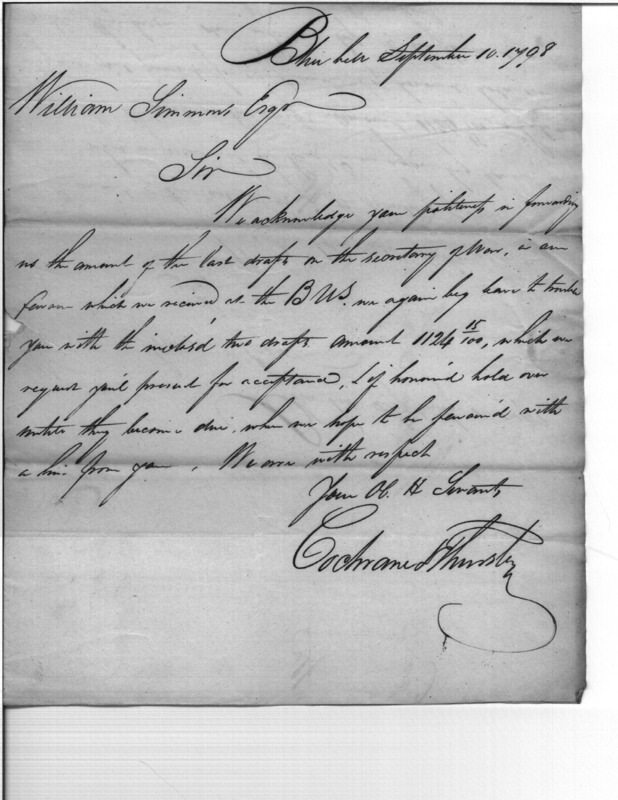 September 10. 1798
William Simmons Esqr
Sir
We acknowledge your politeness in forwarding
us the amount of the last drafts on the secretary of War, in our
favour which we received at the B US. we again beg leave to trouble
you with the inclos'd two drafts amount 1124 15/100, which we
request you'l present for acceptance, & if honour'd hold over
untill they become due, when we hope to be favour'd with
a line from you. We are with respect
Your Ob. H Servants
Cochrane & Thursby